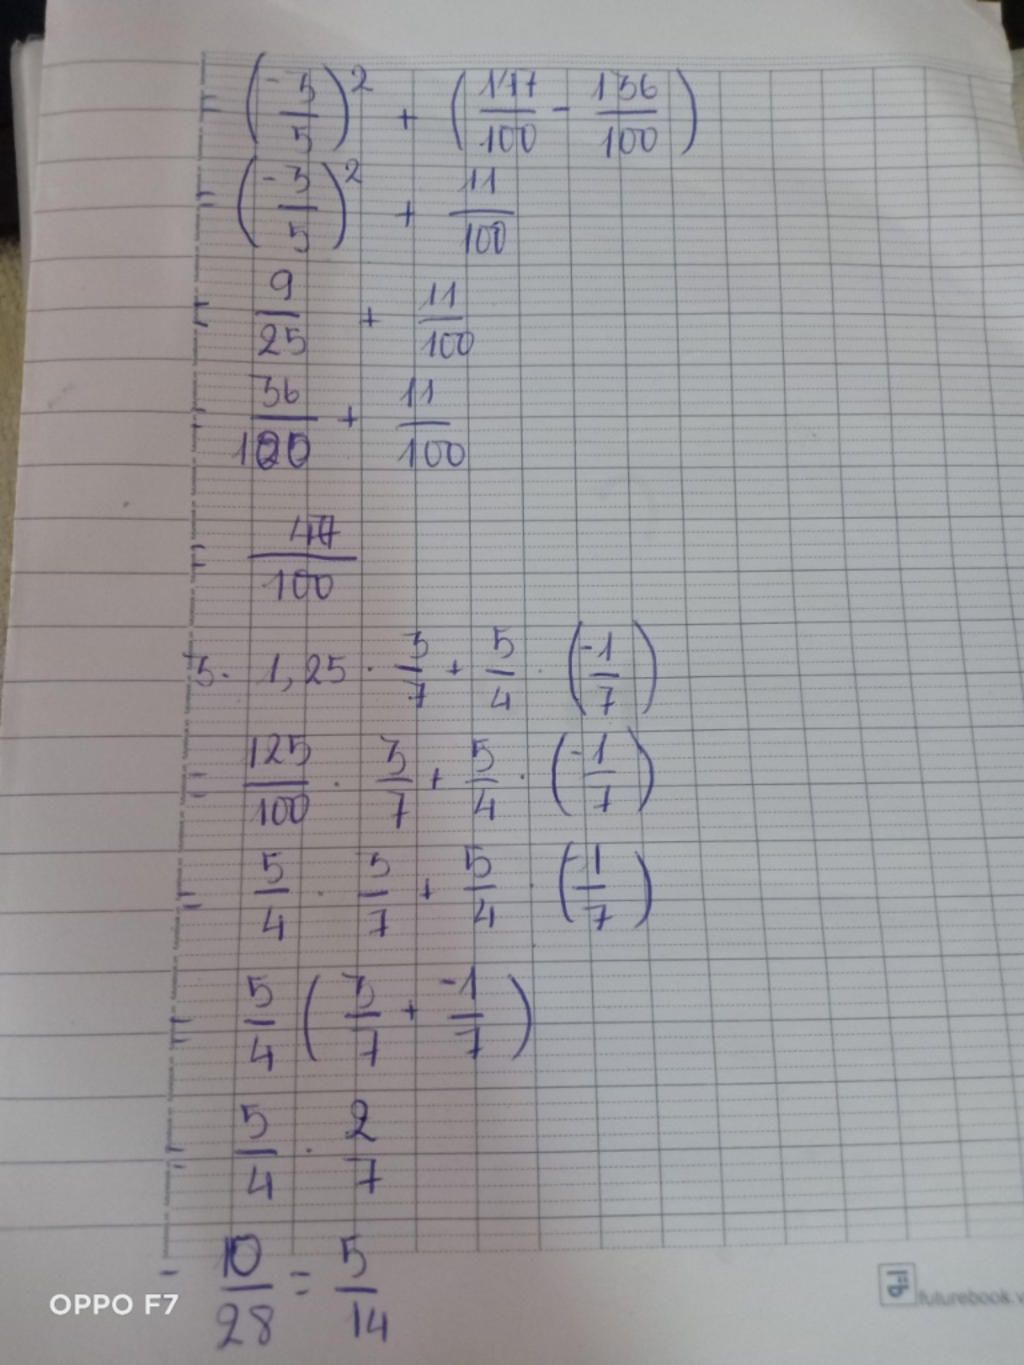 = (-3/5)² + (147/100 - 136/100)
= (-3/5)² + 11/100
= 9/25 + 11/100
= 36/100 + 11/100
= 47/100
3. 1,25 · 3/7 + 5/4 · (-1/7)
= 125/100 · 3/7 + 5/4 · (-1/7)
= 5/4 · 3/7 + 5/4 · (-1/7)
= 5/4 (3/7 + -1/7)
= 5/4 · 2/7
= 10/28 = 5/14
OPPO F7